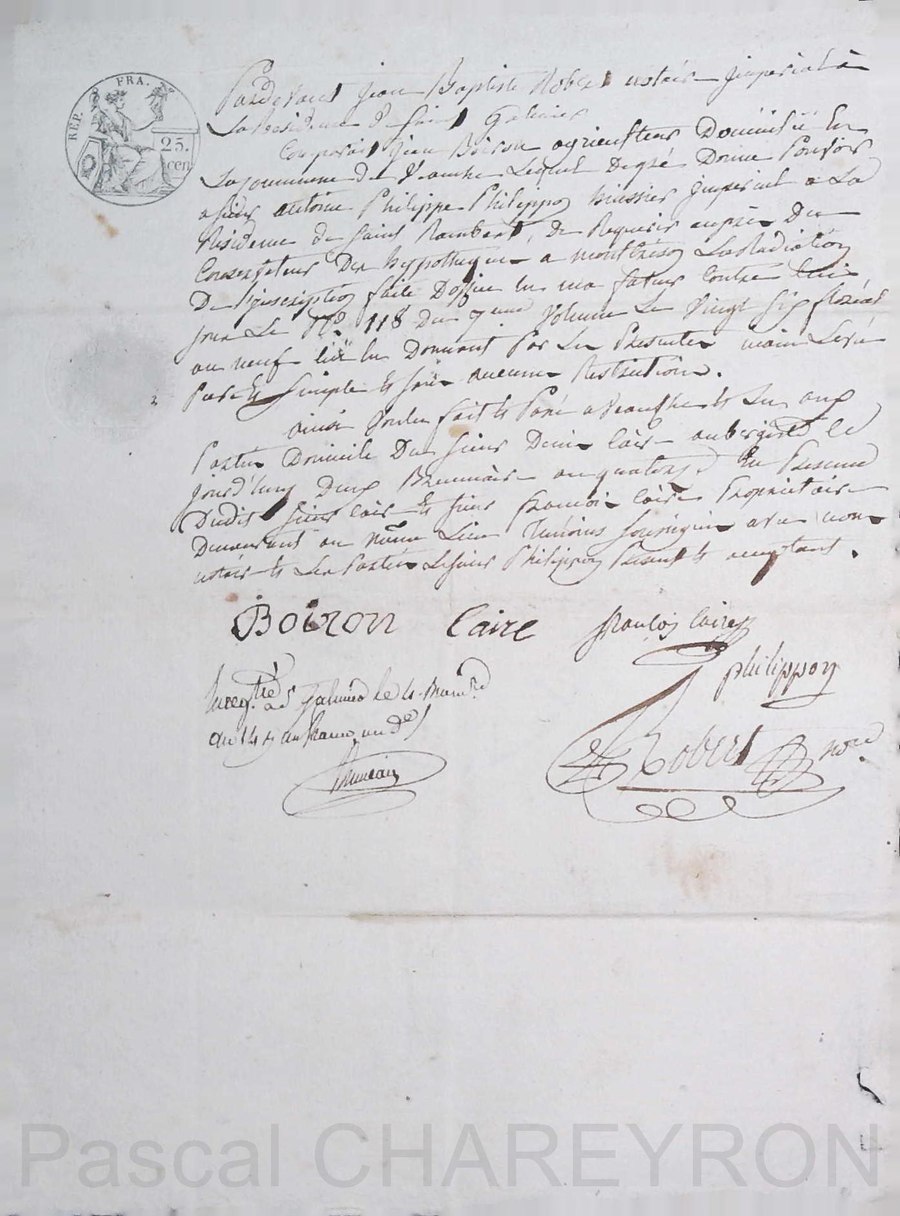 REP. FRA.
25.
cen
Pardevant Jean Baptiste Robert notaire Imperial à
La Residence de Saint Galmier
Comparait Jean Boiron agriculteur Domicilié En
La Commune de Veauche Lequel De gré Donne Pouvoir
a sieur antoine Philippe Philippon huissier Imperial a La
Residence de Saint Rambert, de Requerir auprès Du
Conservateur Des hypotheques a montbrison La Radiation
De l'inscription faite D'office en sa faveur Contre
sous Le N.º 118 Du 7eme Volume Le Vingt Six floréal
an neuf Donnant Par Les Presentes main Levée
Pure et Simple et sans aucune Restriction.
ainsi Voulu fait et Passé a Veauche et Lu aux
Parties Domicile Du sieur Denis Caire aubergiste le
jourd'huy Deux Brumaire an quatorze En Presence
Dudit sieur Caire et sieur françois Caire Proprietaire
Demeurant au même Lieu Temoins Soussignés avec nous
notaire et Les Parties Le sieur Philippon Present et acceptant.
Boiron Caire françois Caire
philippon
Enregtré a St Galmier le 4 Brumre
an 14
Robert nore
Pascal CHAREYRON